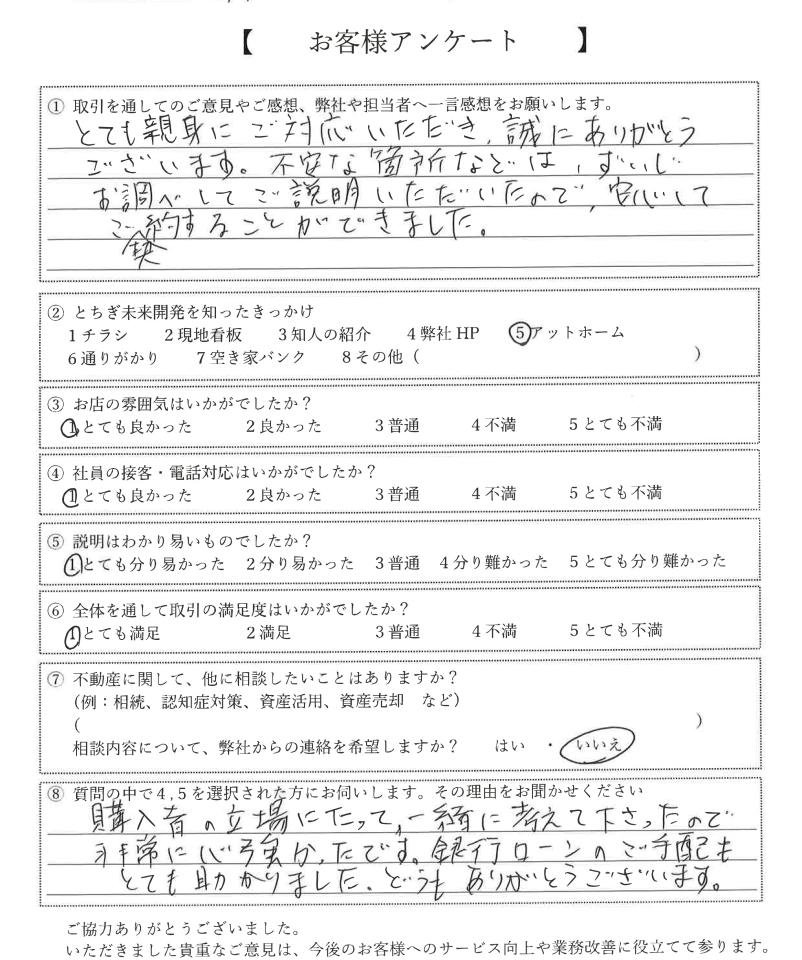 【　お客様アンケート　】
① 取引を通してのご意見やご感想、弊社や担当者へ一言感想をお願いします。
とても親身にご対応いただき、誠にありがとう
ございます。不安な箇所などは、ずいじ
お調べしてご説明いただいたので、安心して
ご契約することができました。
② とちぎ未来開発を知ったきっかけ
1 チラシ　2 現地看板　3 知人の紹介　4 弊社 HP　5 アットホーム
6 通りがかり　7 空き家バンク　8 その他（　）
③ お店の雰囲気はいかがでしたか？
1 とても良かった　2 良かった　3 普通　4 不満　5 とても不満
④ 社員の接客・電話対応はいかがでしたか？
1 とても良かった　2 良かった　3 普通　4 不満　5 とても不満
⑤ 説明はわかり易いものでしたか？
1 とても分り易かった　2 分り易かった　3 普通　4 分り難かった　5 とても分り難かった
⑥ 全体を通して取引の満足度はいかがでしたか？
1 とても満足　2 満足　3 普通　4 不満　5 とても不満
⑦ 不動産に関して、他に相談したいことはありますか？
（例：相続、認知症対策、資産活用、資産売却　など）
（　）
相談内容について、弊社からの連絡を希望しますか？　はい　・　いいえ
⑧ 質問の中で 4 , 5 を選択された方にお伺いします。その理由をお聞かせください
購入者の立場にたって、一緒に考えて下さったので
非常に心強かったです。銀行ローンのご手配も
とても助かりました。どうもありがとうございます。
ご協力ありがとうございました。
いただきました貴重なご意見は、今後のお客様へのサービス向上や業務改善に役立てて参ります。